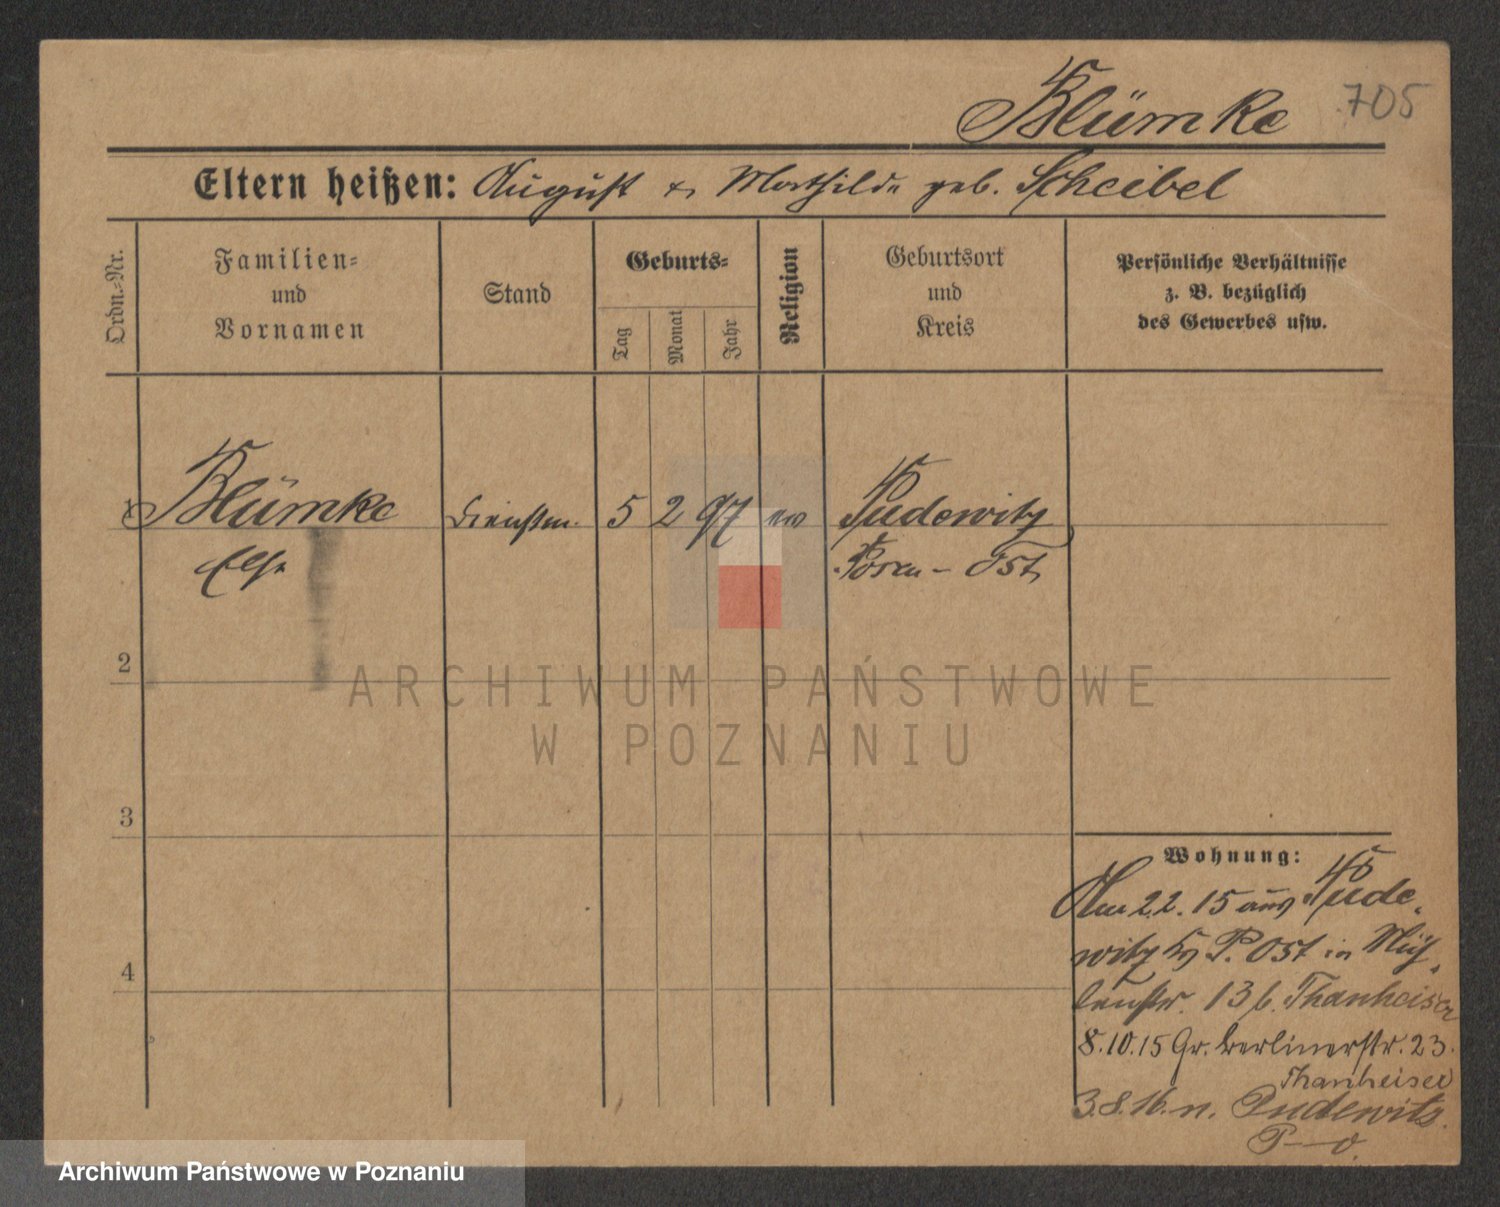 Blümke 705
Eltern heißen: August u. Mathilde geb. Scheibel
Ordn.-Nr.
Familien-
und
Vornamen
Stand
Geburts-
Tag
Monat
Jahr
Religion
Geburtsort
und
Kreis
Persönliche Verhältnisse
z. B. bezüglich
des Gewerbes usw.
1 Blümke Dienstm. 5 2 97 ev Pudewitz
Else Posen-Ost
2
3
4
Wohnung:
Am 2.2.15 aus Pude-
witz Kr P. Ost in Müh-
lenstr. 13 b. Thanheiser
8.10.15 Gr. Berlinerstr. 23.
Thanheiser
3.8.16. n. Pudewitz.
P-O.
ARCHIWUM PAŃSTWOWE
W POZNANIU
Archiwum Państwowe w Poznaniu